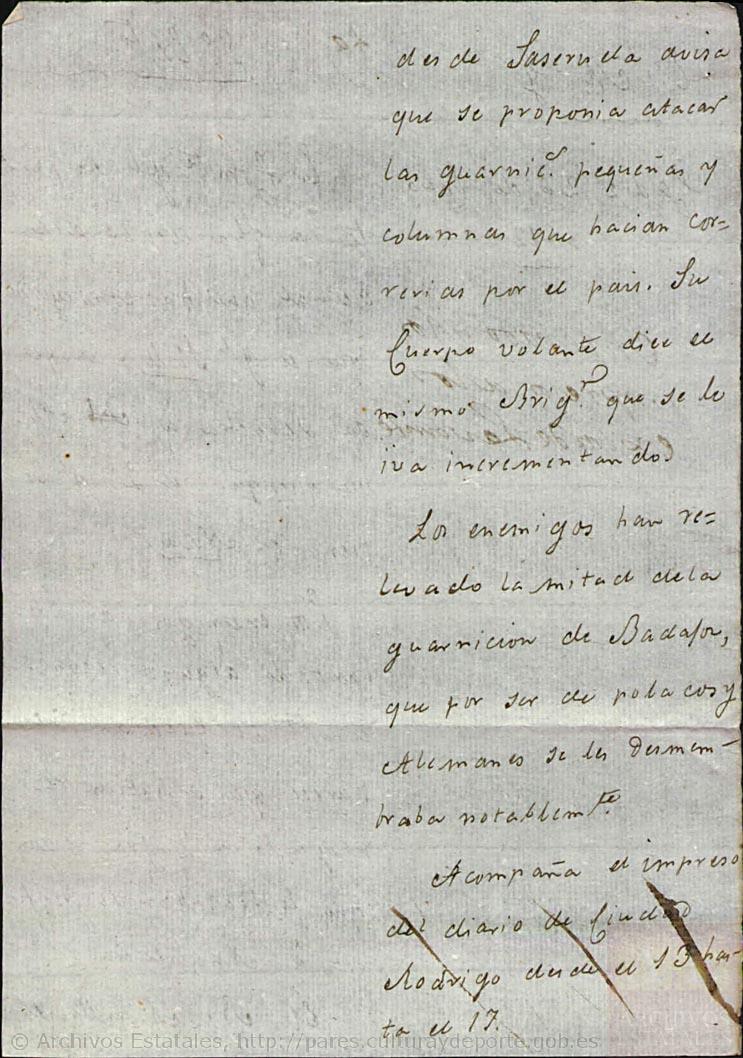 desde Saseruela avisa
que se proponia atacar
las guarnic.s pequeñas y
columnas que hacian cor=
rerias por el pais. Su
Cuerpo volante dice el
mismo Brig.r que se le
iva incrementando.
Los enemigos han re=
levado la mitad dela
guarnicion de Badajoz,
que por ser de polacos y
Alemanes se les desmem=
braba notablem.te
Acompaña el impreso
del diario de Ciudad
Rodrigo desde el 13 has-
ta el 17.
© Archivos Estatales, http://pares.culturaydeporte.gob.es